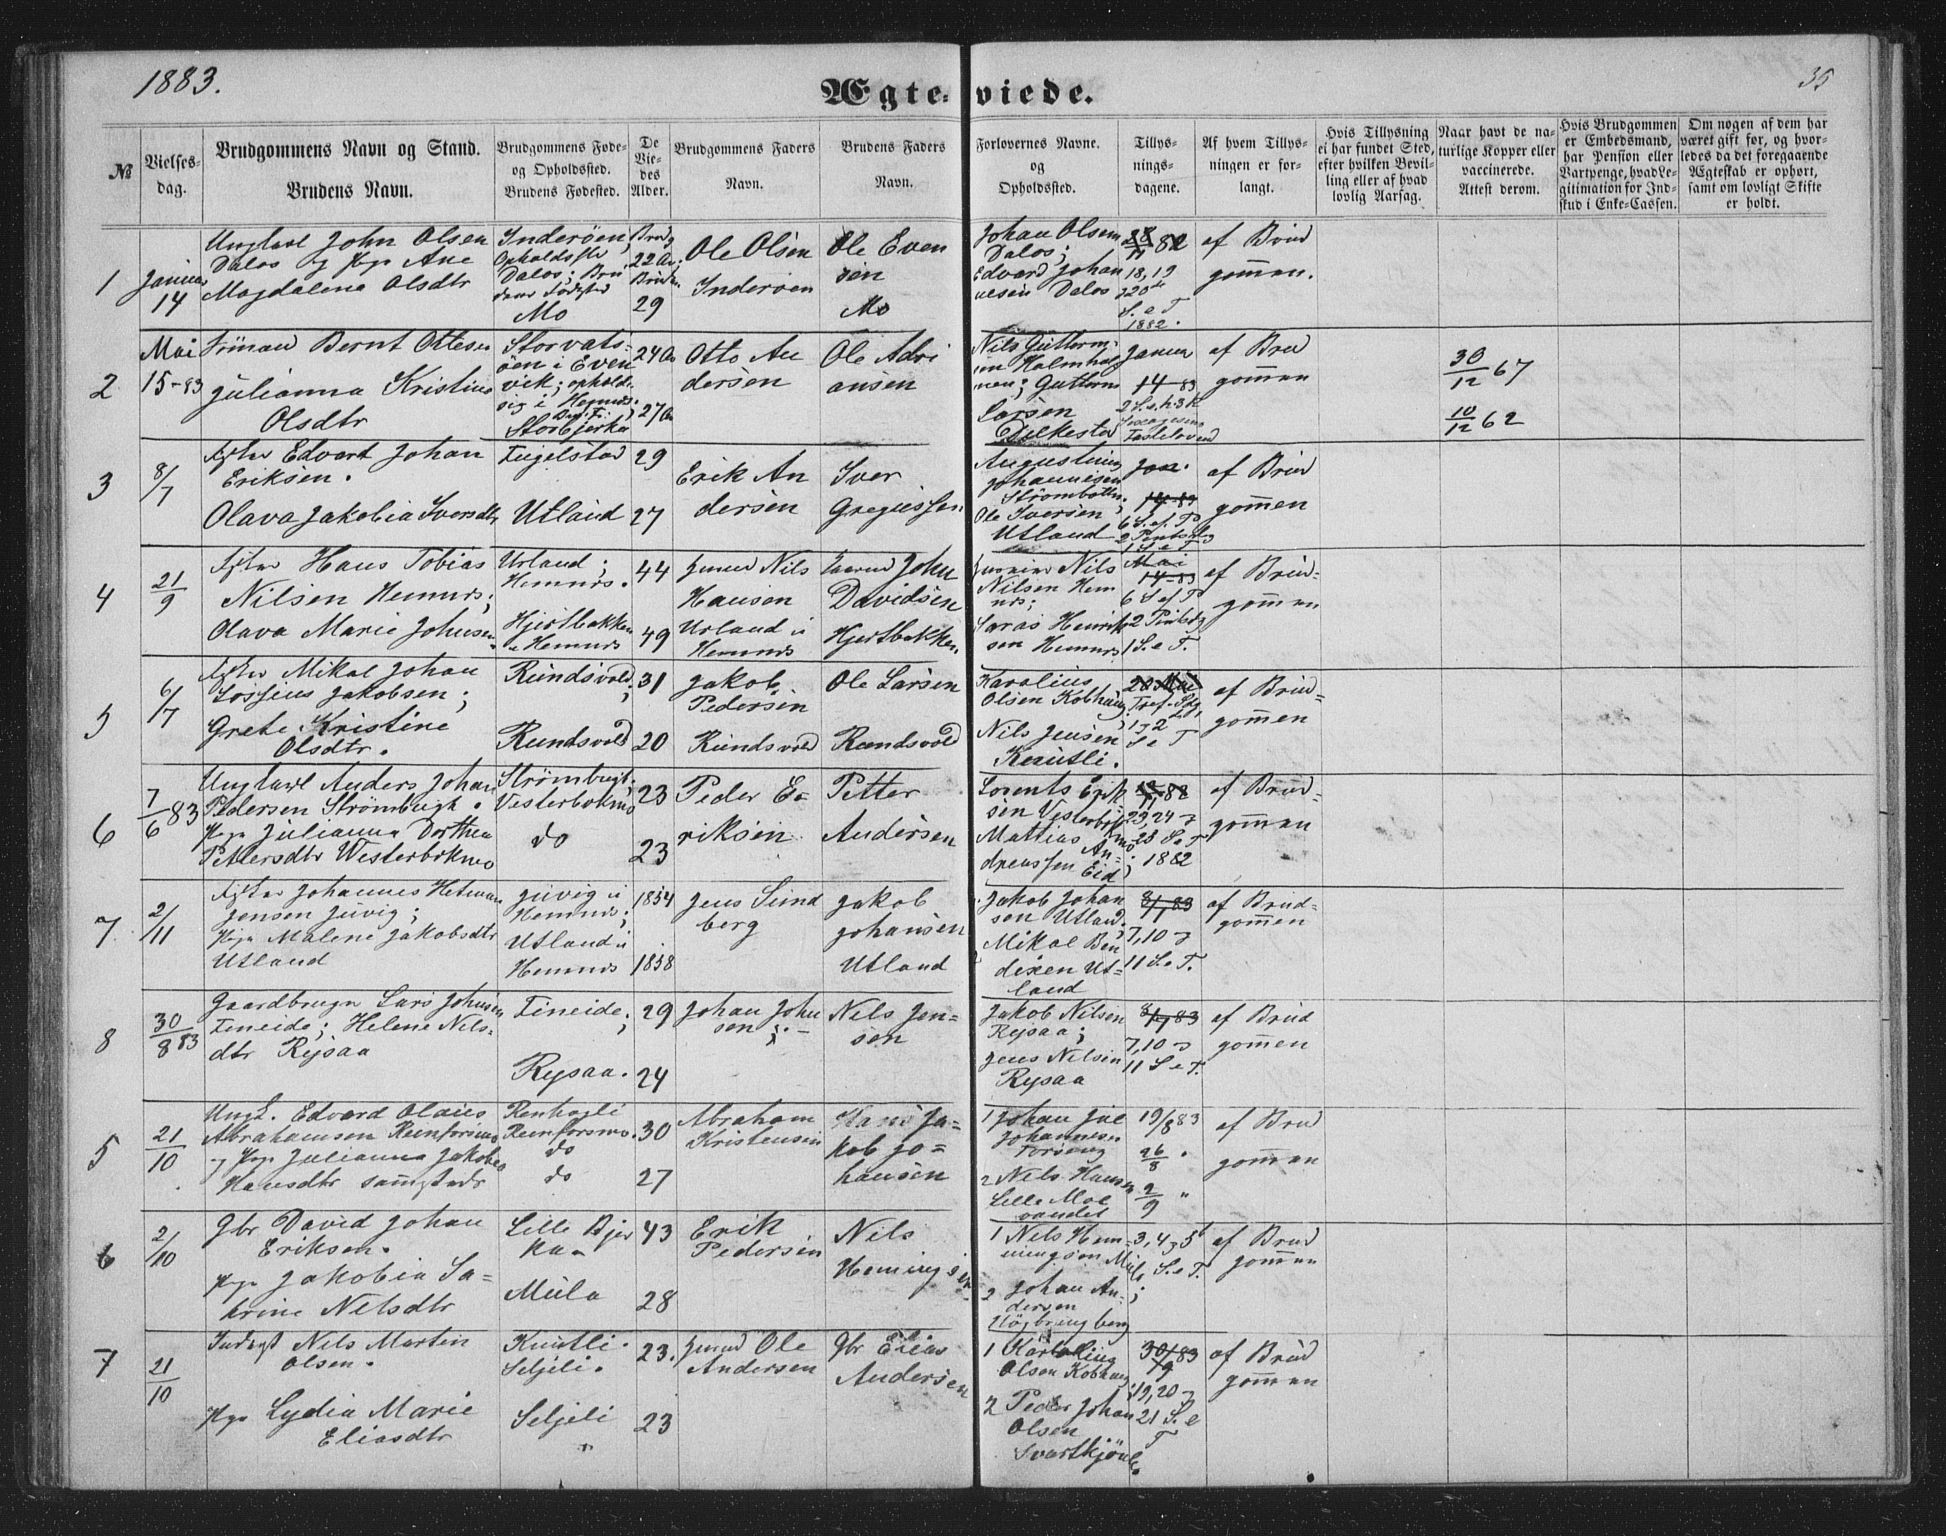 1883.
Ægte-viede.
35
№
Vielses-
dag.
Brudgommens Navn og Stand.
Brudens Navn.
Brudgommens Føde-
og Opholdssted.
Brudens Fødested.
De
Vie-
des
Alder.
Brudgommens Faders
Navn.
Brudens Faders
Navn.
Forlovernes Navne.
og
Opholdssted.
Tillys-
nings-
dagene.
Af hvem Tillys-
ningen er for-
langt.
Hvis Tillysning
ei har fundet Sted,
efter hvilken Bevil-
ling eller af hvad
lovlig Aarsag.
Naar havt de na-
turlige Kopper eller
vaccinerede.
Attest derom.
Hvis Brudgommen
er Embedsmand,
har Pension eller
Vartpenge, hvad Le-
gitimation for Ind-
skud i Enke-Cassen.
Om nogen af dem har
været gift før, og hvor-
ledes da det foregaaende
Ægteskab er ophørt,
samt om lovligt Skifte
er holdt.
1
14
Ungkarl John Olsen
Dalos og Pige Ane
Magdalena Olsdtr
Inderøen,
Dalos; Bru
Mo
22
29
Ole Olsen
Inderøen
Ole Even
sen
Mo
Johan Olsen
Dalos;
Edvard Johan
nesen Dalos
18, 19
S. e T
1882.
af Brud
gommen.
2
Mai
15-83
Bernt Ottesen
Julianna Kristine
Olsdtr
Storvats-
øen i Even
vik; ophold
sig i Hemnes.
Storbjerka
24
27
Otto An
dersen
Ole Adri
ansen
Nils Guttorm
sen Holmhol
men; Guttorm
Larsen
Janua
14-83
2 S. e. h 3 K
af Brud
gommen
30/12 67
10/12 62
3
8/7
Edvart Johan
Eriksen.
Olava Jakobia Iversdtr
Fugelstad
Utland
29
27
Erik An
dersen
Iver
Gregiussen
Johannesen
Strømbotn.
Ole Iversen;
Utland
Jan.
14-83
6 S. ef. P
1 S e T
af Brud
gommen
4
21/9
Hans Tobias
Nilsen Hemnes;
Olava Marie Johnsen
Urland;
Hemnes.
Hjertbakken
i Hemnes
44
49
Nils
Hansen
Urland i
Hemnes
John
Davidsen
Hjertbakken.
Nils
Nilsen Hem
nes;
Saras Henrik
sen Hemnes
Mai
14-83
6 S ef P
1 S. e T.
af Brud-
gommen
5
6/7
Mikal Johan
Jakobsen;
Grete Kristine
Olsdtr.
Rundsvold;
Rundsvold
31
20
Jakob
Pedersen
Rundsvold
Ole Larsen
Rundsvold
Karolius
Olsen Kobhaug;
Nils Jensen
Knutli.
20 Mai
1 & 2
S e T
af Brud-
gommen
6
7/6 83
Ungkarl Anders Johan
Pedersen Strømbugt.
Pige Julianna Dorthea
Pettersdtr Westerbokmo
Strømbugt;
Vesterbokmo
do
23
23
Peder E-
riksen
Petter
Andersen
Lorents Erik
sen Vesterbok
mo
Mattias An-
dreassen Eid
23, 24 &
25 S. e T
1882
af Brud-
gommen
7
2/11
Johannes Hetman
Jensen Juvig;
Pige Malene Jakobsdtr
Utland
Juvig i
Hemnes;
Utland i
Hemnes
1854
1858
Jens Lund
berg
Jakob
Johansen
Utland
Jakob Johan
sen Utland;
Mikal Ben
dixen Ut-
land
8/7 83
7, 10 &
11 S. e T.
af Brud-
gommen
8
30/8 83
Gaardbruger Lars Johnsen
Fineide; Helene Nils-
dtr Rysaa
Fineide;
Rysaa.
29
24
Johan John
sen;
Nils Jen-
sen
Jakob Nilsen
Rysaa;
Jens Nilsen
Rysaa
8/7 83
7, 10 &
11 S e T.
af Brud
gommen
5
21/10
Ungk. Edvard Olaus
Abrahamsen Reinforsmo
og Pige Julianna Jakobea
Hansdtr sammesteds
Reinforsmo.
do
do
30
27
Abraham
Kristensen
Hans Ja-
kob Jo-
hansen
1 Johan Jul
Johannesen
2 Nils Hansen
Lille Mol
vandet
19/8 83
26/8 "
2/9 "
af Brud
gommen
6
2/10
Gbr David Johan
Eriksen.
Pige Jakobia Sa-
trine Nilsdtr
Lille Bjer
kaa
Mula
43
28
Erik
Pedersen
Nils
Heningsen
1 Nils Hen-
ningsen Mula;
2 Johan An-
dersen
3, 4 & 5
S. e T.
af Brud
gommen
7
21/10
Inderst Nils Martin
Olsen.
Pige Lydia Marie
Eliasdtr
Knutli.
Seljeli.
Seljeli
"
23.
23
Ole
Andersen
Gbr Elias
Andersen
1 Karolius
Olsen Kobhaug
2 Peder Johan
Olsen
Svartkjønli.
30/9 83
19, 20 &
21 S. e
T
af Brud
gommen